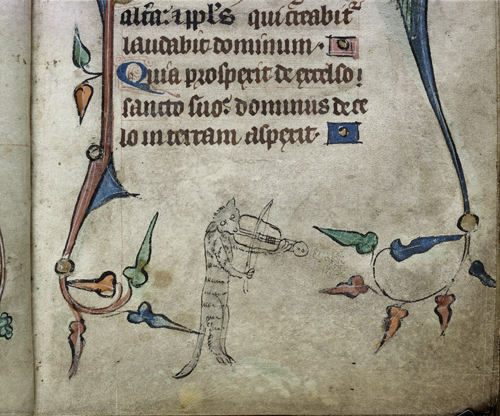 alt̃a: ⁊ ppl̃s qui creabit᷑
laudabit dominum.
Quia prospexit de excelso
sancto suo: dominus de ce
lo in terram aspexit.